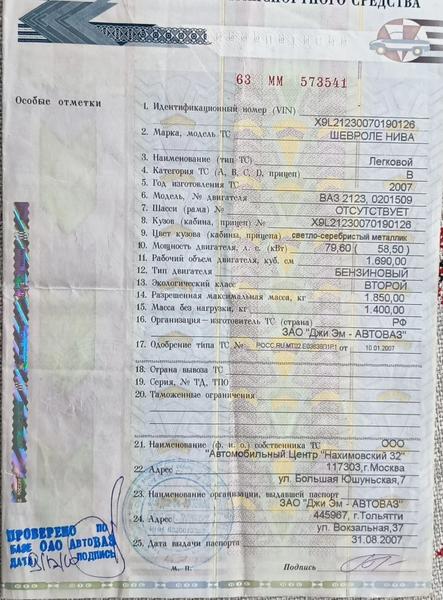 ТРАНСПОРТНОГО СРЕДСТВА
63 ММ 573541
Особые отметки
1. Идентификационный номер (VIN) X9L21230070190126
2. Марка, модель ТС ШЕВРОЛЕ НИВА
3. Наименование (тип ТС) Легковой
4. Категория ТС (А, В, С, D, прицеп) В
5. Год изготовления ТС 2007
6. Модель, № двигателя ВАЗ 2123, 0201509
7. Шасси (рама) № ОТСУТСТВУЕТ
8. Кузов (кабина, прицеп) № X9L21230070190126
9. Цвет кузова (кабины, прицепа) светло-серебристый металлик
10. Мощность двигателя, л. с. (кВт) 79,60 ( 58,50 )
11. Рабочий объем двигателя, куб. см 1.690,00
12. Тип двигателя БЕНЗИНОВЫЙ
13. Экологический класс ВТОРОЙ
14. Разрешенная максимальная масса, кг 1.850,00
15. Масса без нагрузки, кг 1.400,00
16. Организация—изготовитель ТС (страна) РФ
ЗАО "Джи Эм - АВТОВАЗ"
17. Одобрение типа ТС № от 10.01.2007
18. Страна вывоза ТС
19. Серия, № ТД, ТПО
20. Таможенные ограничения
21. Наименование (ф. и. о.) собственника ТС ООО
"Автомобильный Центр "Нахимовский 32"
22. Адрес 117303,г.Москва
ул. Большая Юшуньская,7
23. Наименование организации, выдавшей паспорт
ЗАО "Джи Эм - АВТОВАЗ"
24. Адрес 445967, г.Тольятти
ул. Вокзальная,37
25. Дата выдачи паспорта 31.08.2007
М. П. Подпись
ПРОВЕРЕНО ПО
БАЗЕ ОАО АвтоВАЗ
ДАТА ПОДПИСЬ